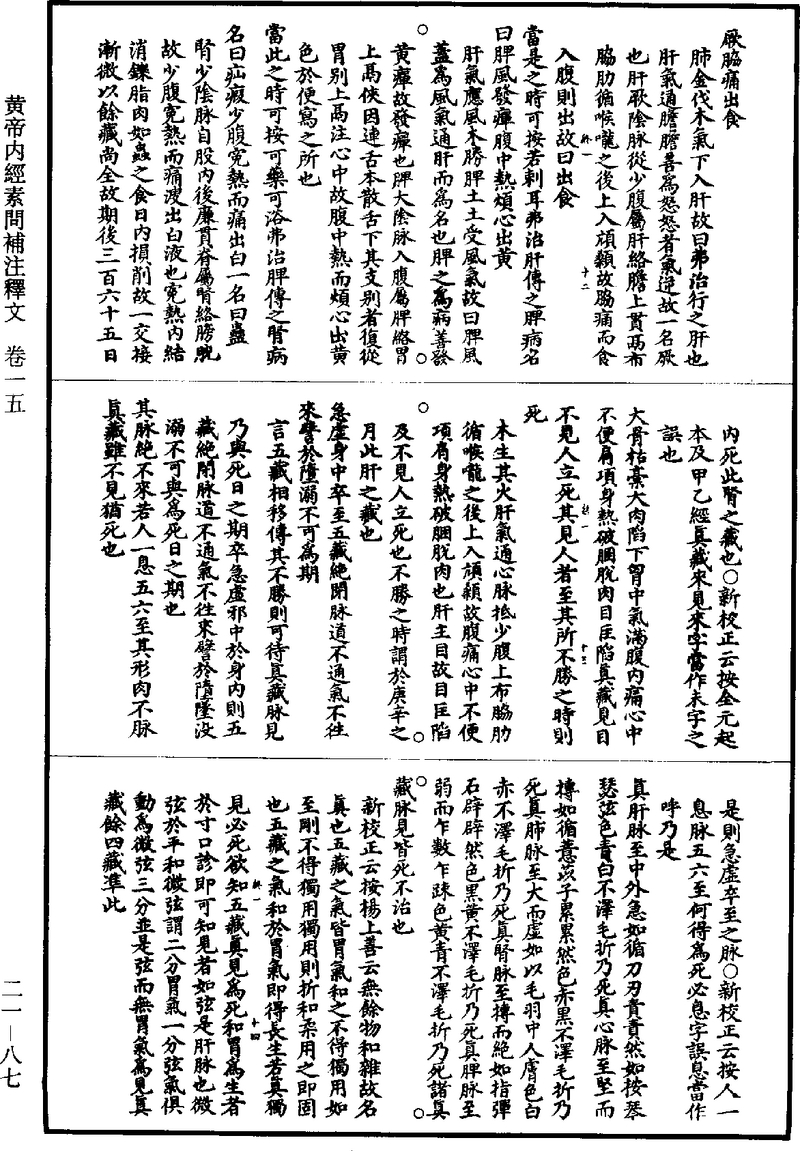 黄帝内經素問補注釋文　卷一五
二一—八七
厥脇痛出食
肺金伐木氣下入肝故曰弗治行之肝也
肝氣通膽膽善爲怒怒者氣逆故一名厥
也肝厥陰脉從少腹屬肝絡膽上貫鬲布
脇肋循喉嚨之後上入頏顙故脇痛而食
入腹則出故曰出食
當是之時可按若刺耳弗治肝傳之脾病名
曰脾風發癉腹中熱煩心出黄
肝氣應風木勝脾土土受風氣故曰脾風
蓋爲風氣通肝而爲名也脾之爲病善發
黄癉故發癉也脾太陰脉入腹屬脾絡胃
上鬲俠咽連舌本散舌下其支别者復從
胃别上鬲注心中故腹中熱而煩心出黄
色於便寫之所也
當此之時可按可藥可浴弗治脾傳之腎病
名曰疝瘕少腹寃熱而痛出白一名曰蠱
腎少陰脉自股内後廉貫脊屬腎絡膀胱
故少腹寃熱而痛溲出白液也寃熱内結
消鑠脂肉如蟲之食日内損削故一交接
漸微以餘藏尚全故期後三百六十五日
内死此腎之藏也○新校正云按全元起
本及甲乙經真藏來見來字當作未字之
誤也
大骨枯槀大肉陷下胷中氣滿腹内痛心中
不便肩項身熱破䐃脫肉目匡陷真藏見目
不見人立死其見人者至其所不勝之時則
死
木生其火肝氣通心脉抵少腹上布脇肋
循喉嚨之後上入頏顙故腹痛心中不便
項肩身熱破䐃脫肉也肝主目故目匡陷
及不見人立死也不勝之時謂於庚辛之
月此肝之藏也
急虚身中卒至五藏絶閉脉道不通氣不往
來譬於墮溺不可爲期
言五藏相移傳其不勝則可待真藏脉見
乃與死日之期卒急虚邪中於身内則五
藏絶閉脉道不通氣不往來譬於墮墜没
溺不可與爲死日之期也
其脉絶不來若人一息五六至其形肉不脉
真藏雖不見猶死也
是則急虚卒至之脉○新校正云按人一
息脉五六至何得爲死必息字誤息當作
呼乃是
真肝脉至中外急如循刀刃責責然如按琴
瑟弦色青白不澤毛折乃死真心脉至堅而
摶如循薏苡子累累然色赤黑不澤毛折乃
死真肺脉至大而虚如以毛羽中人膚色白
赤不澤毛折乃死真腎脉至摶而絶如指彈
石辟辟然色黑黄不澤毛折乃死真脾脉至
弱而乍數乍踈色黄青不澤毛折乃死諸真
藏脉見皆死不治也
新校正云按楊上善云無餘物和雜故名
真也五藏之氣皆胃氣和之不得獨用如
至剛不得獨用獨用則折和柔用之即固
也五藏之氣和於胃氣即得長生若真獨
見必死欲知五藏真見爲死和胃爲生者
於寸口診即可知見者如弦是肝脉也微
弦於平和微弦謂二分胃氣一分弦氣俱
動爲微弦三分並是弦而無胃氣爲見真
藏餘四藏準此